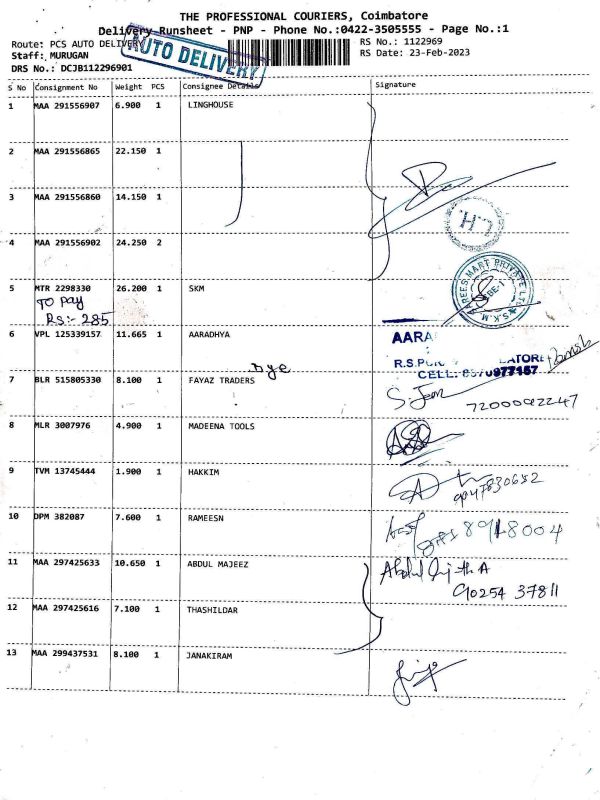 THE PROFESSIONAL COURIERS, Coimbatore
Delivery Runsheet - PNP - Phone No.:0422-3505555 - Page No.:1
Route: PCS AUTO DELIVERY
RS No.: 1122969
AUTO DELIVERY
Staff: MURUGAN
RS Date: 23-Feb-2023
DRS No.: DCJB112296901
S No Consignment No Weight PCS Consignee Details Signature
1 MAA 291556907 6.900 1 LINGHOUSE
2 MAA 291556865 22.150 1
3 MAA 291556860 14.150 1
4 MAA 291556902 24.250 2
5 MTR 2298330 26.200 1 SKM
To Pay
Rs:- 285
6 VPL 125339157 11.665 1 AARADHYA
CELL:
7 BLR 515805330 8.100 1 FAYAZ TRADERS
8 MLR 3007976 4.900 1 MADEENA TOOLS
9 TVM 13745444 1.900 1 HAKKIM
9047830652
10 DPM 382087 7.600 1 RAMEESN
11 MAA 297425633 10.650 1 ABDUL MAJEEZ
90254 37811
12 MAA 297425616 7.100 1 THASHILDAR
13 MAA 299437531 8.100 1 JANAKIRAM